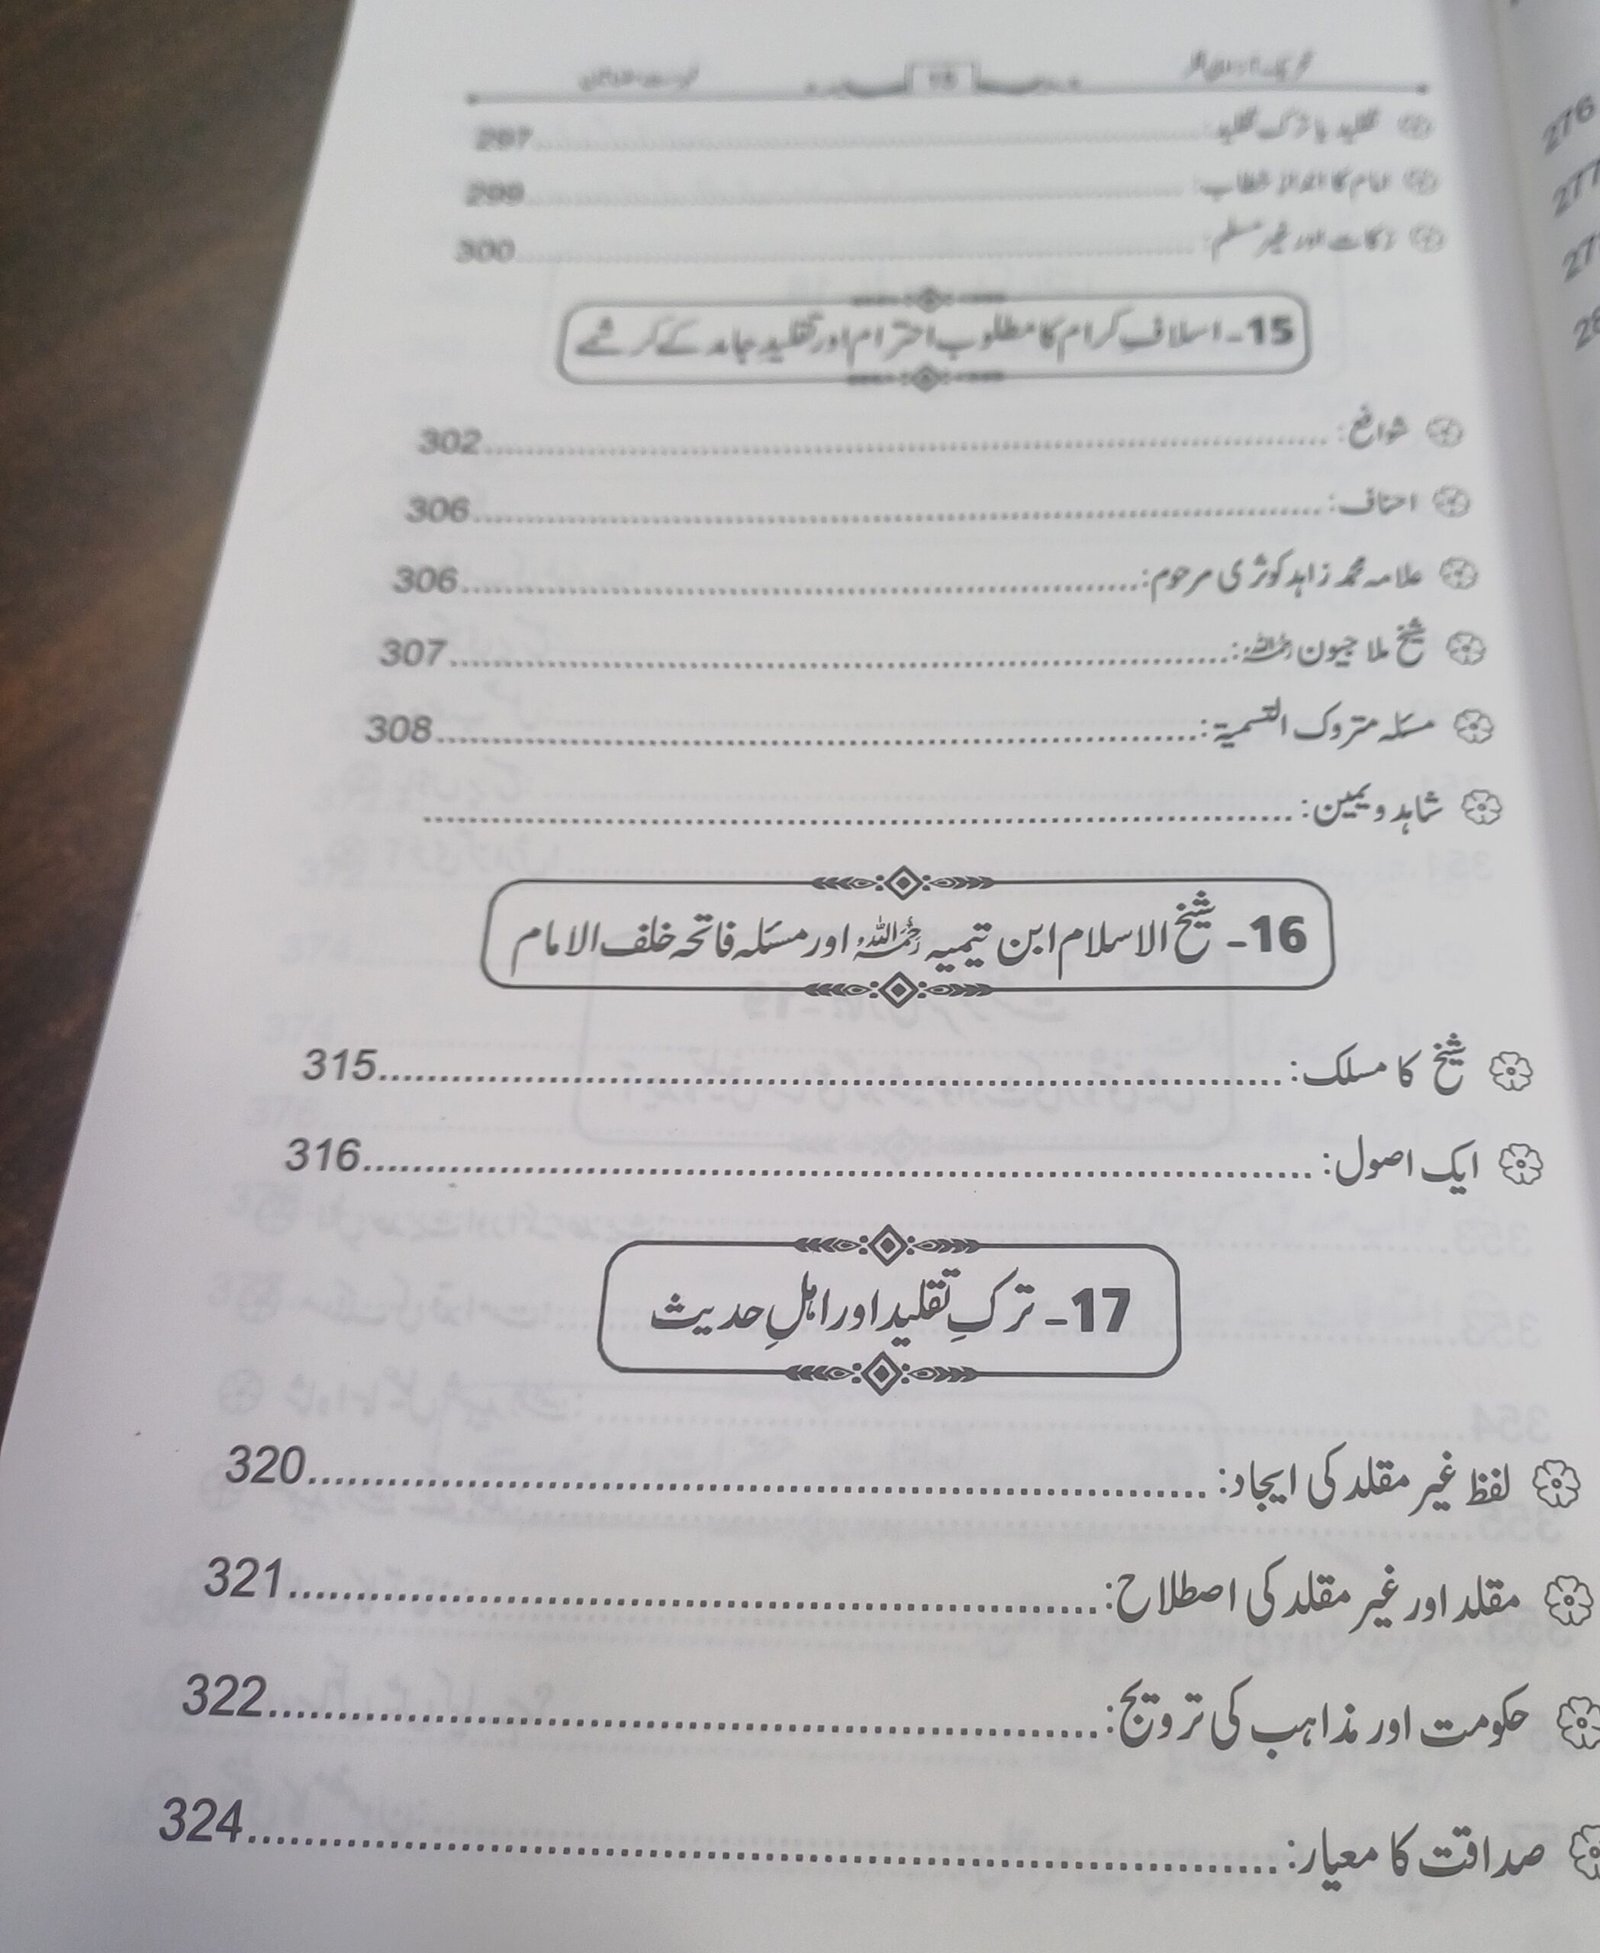 فہرست مضامین
تقلید یا ترک تقلید:........297
امام کا انداز خطاب:........299
زکات اور غیر مسلم:........300
15- اسلافِ کرام کا مطلوب احترام اور تقلیدِ جامد کے کرشمے
شوافع:........302
احناف:........306
علامہ محمد زاہد کوثری مرحوم:........306
شیخ ملا جیون رحمہ اللہ:........307
مسئلہ متروک التسمیۃ:........308
شاہد و یمین:........
16- شیخ الاسلام ابن تیمیہ رحمہ اللہ اور مسئلہ فاتحہ خلف الامام
شیخ کا مسلک:........315
ایک اصول:........316
17- ترکِ تقلید اور اہلِ حدیث
لفظ غیر مقلد کی ایجاد:........320
مقلد اور غیر مقلد کی اصطلاح:........321
حکومت اور مذاہب کی ترویج:........322
صداقت کا معیار:........324
276
277